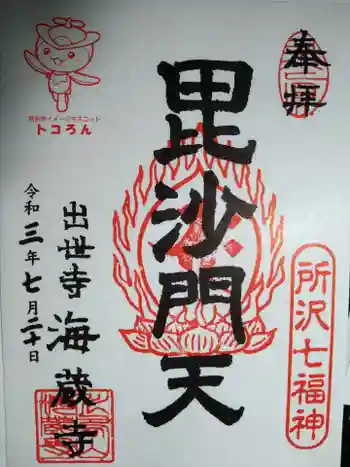 奉拝
毘沙門天
所沢七福神
所沢市イメージマスコット
トコろん
出世寺 海蔵寺
令和三年七月二十日